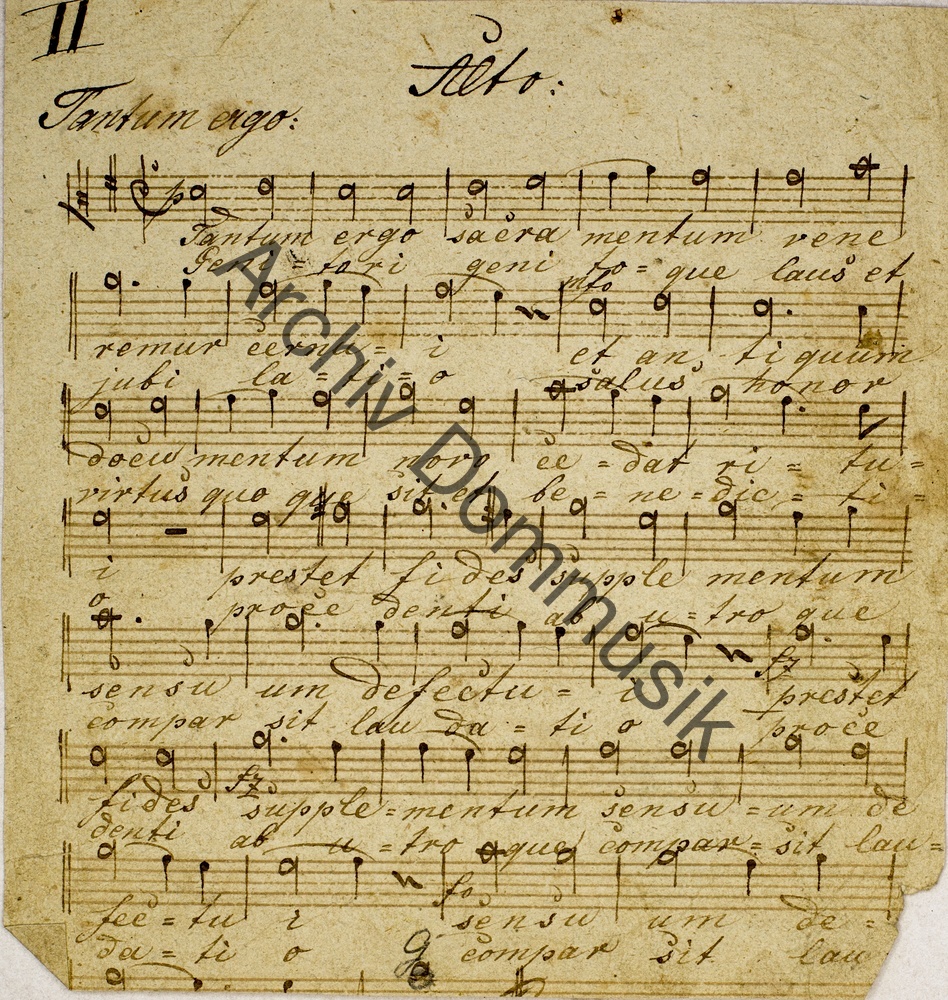 II
Alto:
Tantum ergo:
p
Tantum ergo sacra mentum vene
Geni = tori geni to = que laus et
mfo
remur cernu = i et an ti quum
jubi la = ti = o salus honor
docu mentum novo ce = dat ri = tu =
virtus quo que sit et be = ne = dic = ti =
i prestet fi des supple mentum
o proce denti ab u = tro que
fz
sensu um defectu = i prestet
compar sit lau da = ti o proce
fz
fides supple = mentum sensu = um de
denti ab u = tro que compar = sit lau =
fo
fec = tu i sensu um de =
da = ti o compar sit lau
Archiv Dommusik